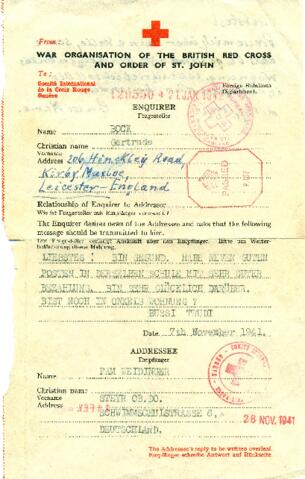 From:
WAR ORGANISATION OF THE BRITISH RED CROSS
AND ORDER OF ST. JOHN
To:
Comité International
de la Croix Rouge
Genève
Foreign Relations
Department.
ENQUIRER
Fragesteller
Name BOCK
Christian name Gertrude
Vorname
Address 206 Hinckley Road,
Kirby Muxloe,
Leicester - England
PASSED
Relationship of Enquirer to Addressee
Wie ist Fragesteller mit Empfänger verwandt?
The Enquirer desires news of the Addressee and asks that the following
message should be transmitted to him.
Der Fragesteller verlangt Auskunft über den Empfänger. Bitte um Weiter-
beförderung dieser Meldung.
LIEBSTES! BIN GESUND. HABE NEUEN GUTEN
POSTEN IN DERSELBEN SCHULE MIT SEHR GUTER
BEZAHLUNG. BIN SEHR GLÜCKLICH DARÜBER.
BIST NOCH IN ONKELS WOHNUNG?
BUSSI TRUDI
Date 7th November 1941.
ADDRESSEE
Empfänger
Name PAM WEIDINGER
Christian name
Vorname STEYR OB.DO.
Address
DEUTSCHLAND.
28 NOV. 1941
The Addressee's reply to be written overleaf.
Empfänger schreibe Antwort auf Rückseite.